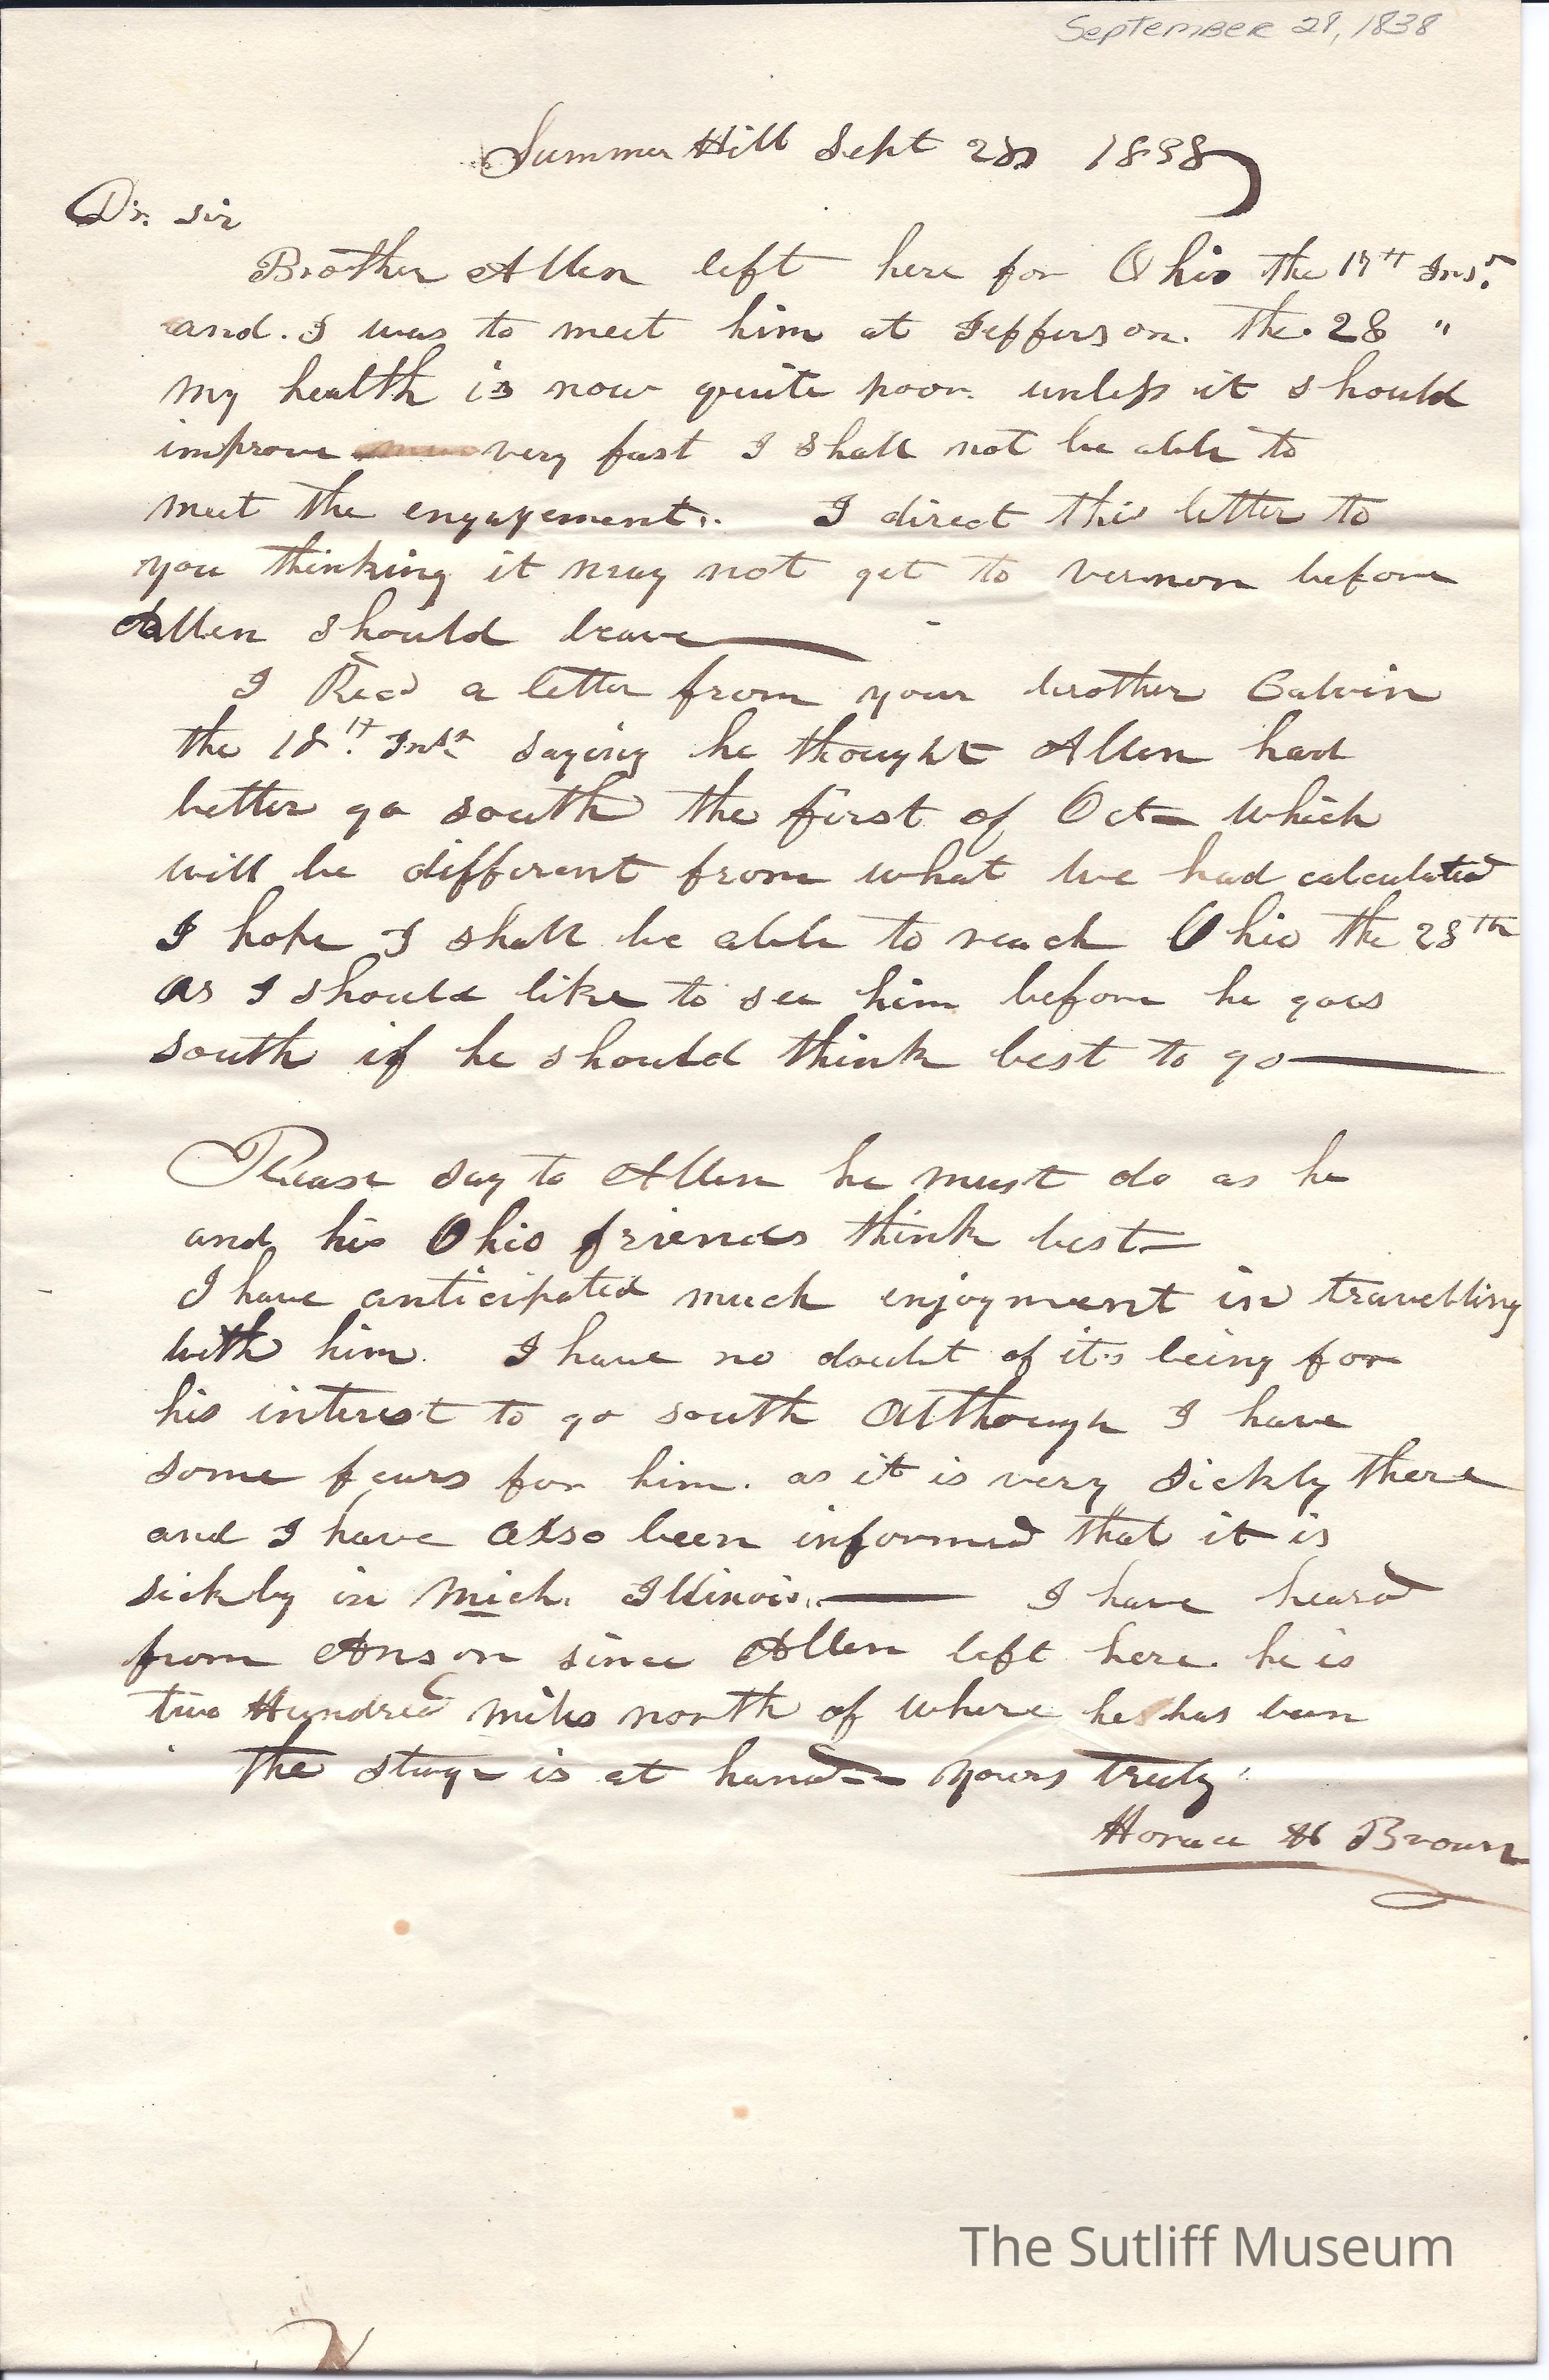 September 29, 1838
Summer Hill Sept 1838
Dr. Sir
Brother Allen left here for Ohio the 17th Inst.
and. I was to meet him at Jefferson. the 28 "
my health is now quite poor. unless it should
improve very fast I shall not be able to
meet the engagement. I direct this letter to
you thinking it may not get to vernon before
Allen should leave
I Recd a letter from your brother Calvin
the 18th. Inst. saying he thought Allen had
better go south the first of Oct - which
will be different from what we had calculated
I hope I shall be able to reach Ohio the 28th
as I should like to see him before he goes
south if he should think best to go
Please say to Allen he must do as he
and his Ohio friends think best -
I have anticipated much enjoyment in travelling
with him. I have no doubt of its being for
his interest to go south Although I have
some fears for him. as it is very sickly there
and I have also been informed that it is
sickly in Mich. Illinois. I have heard
from Anson since Allen left here. he is
two Hundred miles north of where he has been
the stage is at hand - yours truly
Horace H Brown
The Sutliff Museum